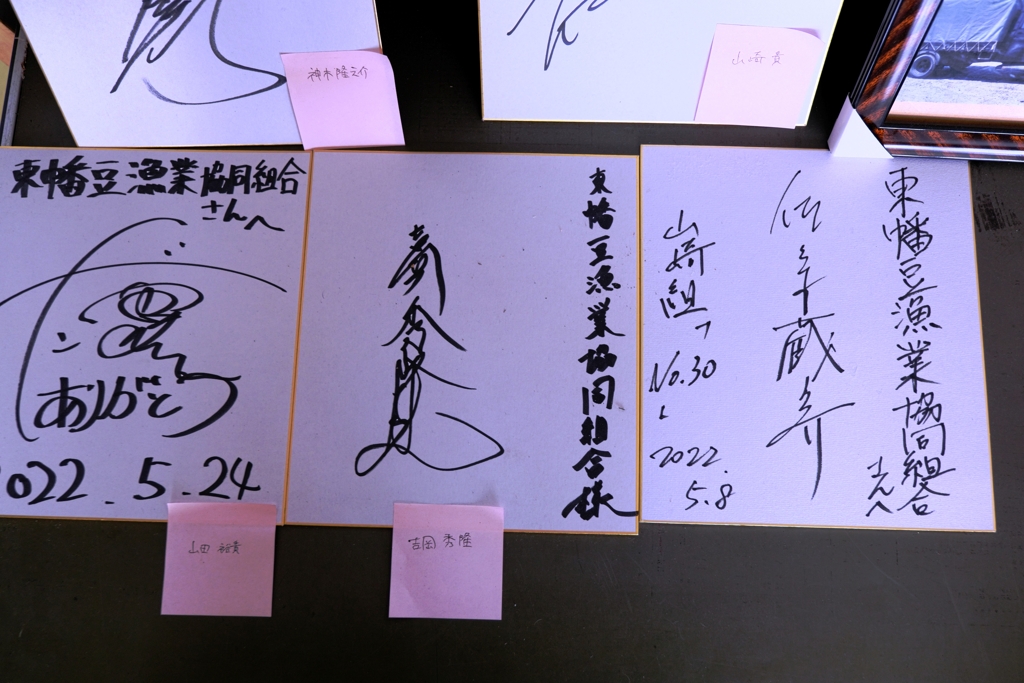 神木隆之介
山崎貴
東幡豆漁業協同組合
さんへ
ありがとう
2022.5.24
山田裕貴
東幡豆漁業協同組合様
吉岡秀隆
東幡豆漁業協同組合
さんへ
佐々木蔵之介
山崎組
No.30
2022.
5.8